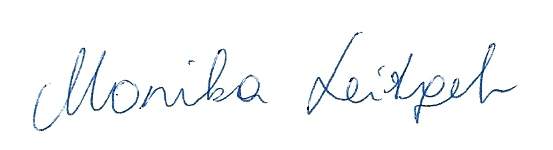 Monika Leitgeb